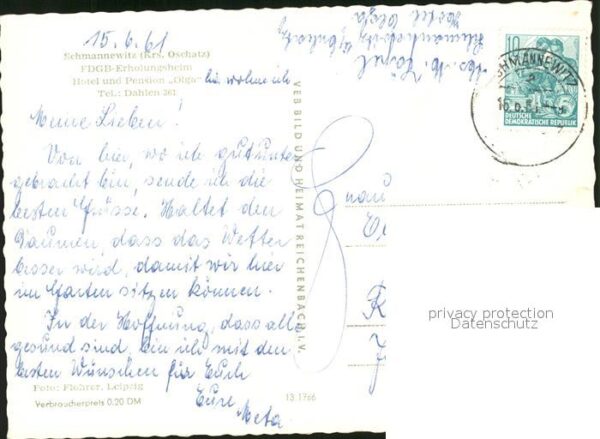 15.6.61
Schmannewitz (Krs. Oschatz)
FDGB-Erholungsheim
Hotel und Pension „Olga"
Tel.: Dahlen 261
hier wohne ich
Meine Lieben!
Von hier, wo ich gut unter
gebracht bin, sende ich die
besten Grüsse. Haltet den
Daumen, dass das Wetter
besser wird, damit wir hier
im Garten sitzen können.
In der Hoffnung, dass alle
gesund sind, bin ich mit den
besten Wünschen für Euch
Eure
Meta
Foto: Flohrer, Leipzig
Verbraucherpreis 0,20 DM
13 1766
VEB BILD UND HEIMAT REICHENBACH I. V.
Hotel Olga
10
DEUTSCHE
DEMOKRATISCHE REPUBLIK
SCHMANNEWITZ
Frau
privacy protection
Datenschutz